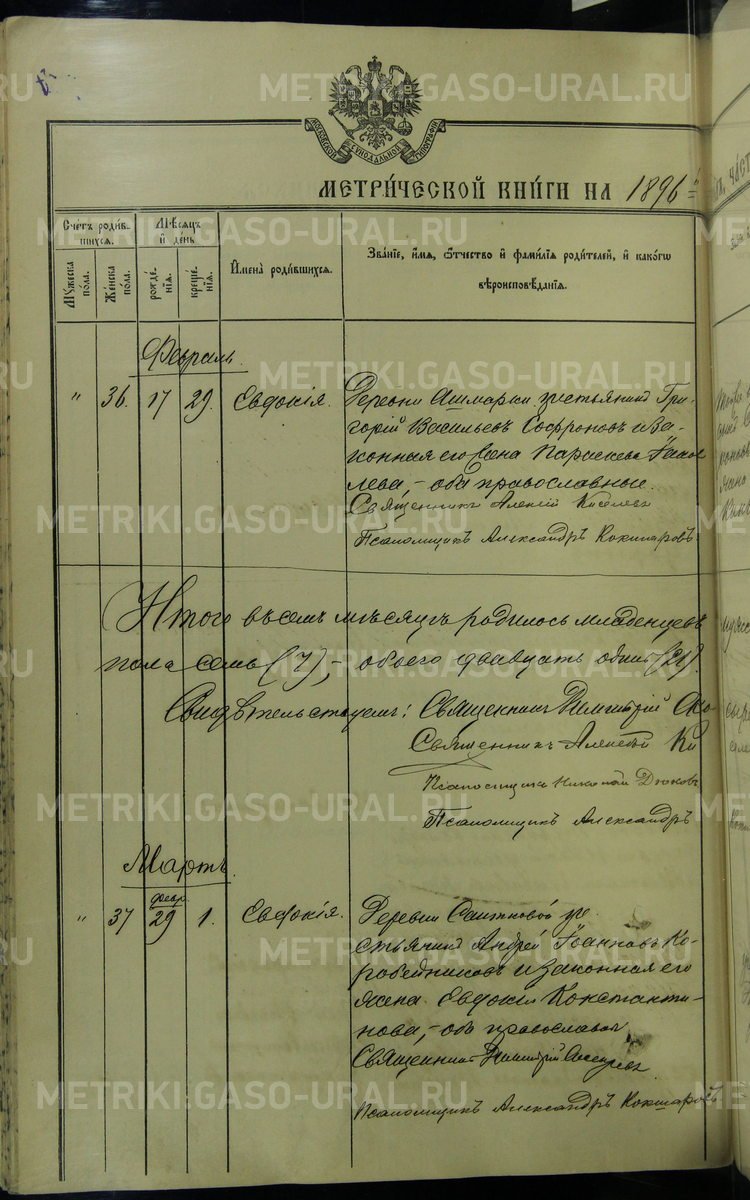 МОСКОВСКОЙ СѴНОДАЛЬНОЙ ТИПОГРАФІИ
МЕТРИ́ЧЕСКОЙ КНИ́ГИ НА 1896
Счетъ роди́в-
шихся.
Мꙋжеска по́ла.
Же́нска по́ла.
Мѣ́сяцъ
и́ день
рожде́нїя.
креще́нїя.
И҆мена̀ роди́вшихся.
Зва́нїе, и҆́мя, ѻ҆́тчество и҆ фами́лїя роди́телей, и҆ како́гѡ
вѣроисповѣ́данїя.
Февраль.
" 36. 17 29. Евдокія.
Деревни Ашмарки крестьянинъ Гри-
горій Васильевъ Софроновъ и за-
конная его жена Параскева Іаков
лева, – оба православные.
Священникъ Алексій Киселевъ
Псаломщикъ Александръ Кокшаровъ
Итого въ семъ мѣсяцѣ родилось младенцевъ
пола семь (7), – обоего двадцать одинъ (21).
Свидѣтельствуемъ: Священникъ Димитрій
Священникъ Алексѣй Ки
Псаломщикъ Николай
Псаломщикъ Александръ
Мартъ.
февр.
" 37 29 1. Евдокія.
Деревни кре
стьянинъ Андрей Іоанновъ Ко-
робейниковъ и законная его
жена Евдокія Константи-
нова, – оба православные
Священникъ Димитрій
Псаломщикъ Александръ Кокшаровъ
METRIKI.GASO-URAL.RU